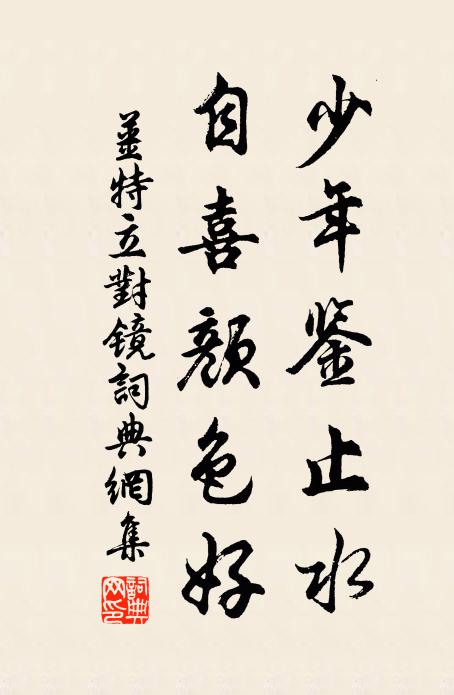 少年鉴止水
自喜颜色好
薑特立對鏡詞典網集
詞典網印